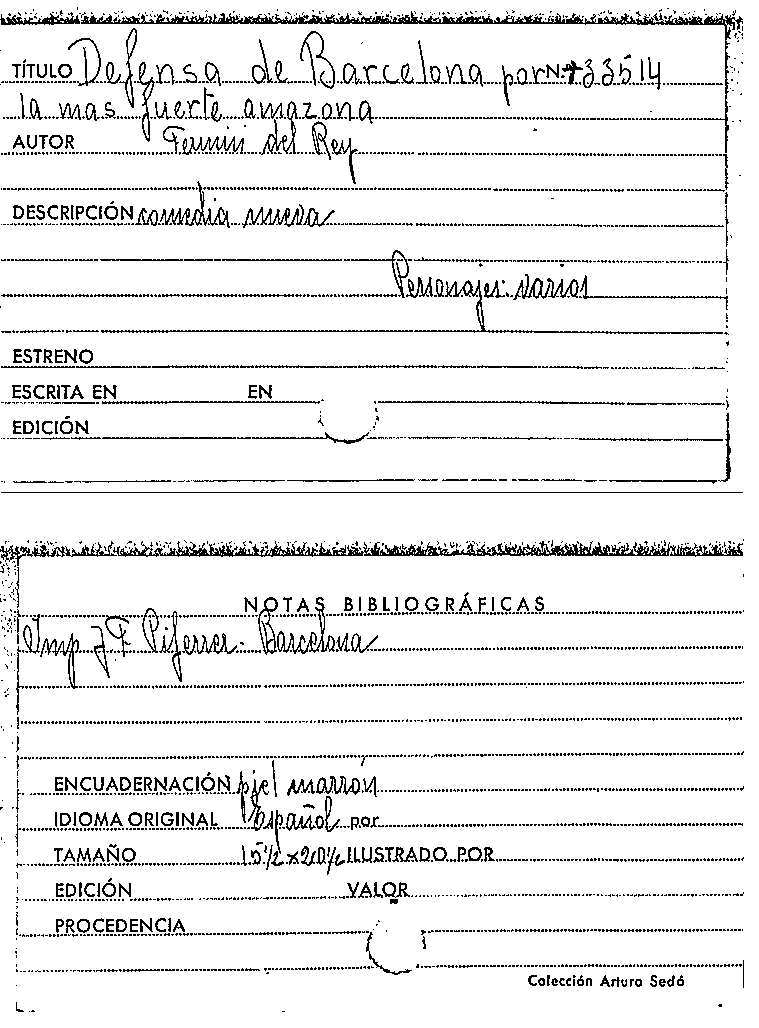 TÍTULO Defensa de Barcelona por N.º 33514
la mas fuerte amazona
AUTOR Fermin del Rey
DESCRIPCIÓN comedia nueva
Personajes: varios
ESTRENO
ESCRITA EN EN
EDICIÓN
NOTAS BIBLIOGRÁFICAS
Imp J F Piferrer - Barcelona
ENCUADERNACIÓN piel marrón
IDIOMA ORIGINAL Español por
TAMAÑO 15½ x 20½ ILUSTRADO POR
EDICIÓN VALOR
PROCEDENCIA
Colección Arturo Sedó